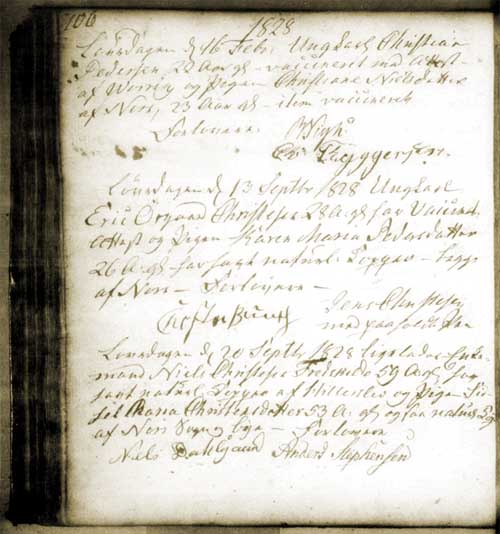 106
1828
Løverdagen d. 16 Febr. Ungkarl Christian
Pedersen, 22 Aar gl - vaccineret med Attest
af Worrsø og Pigen Christiane Nielsdatter
af Nors, 23 Aar gl - item vaccineret
Forlovere.
Løverdagen d. 13 Septbr 1828 Ungkarl
Eric Christense 28 A. gl har Vaccinat.
Attest og Pigen Karen Maria Pedersdatter
26 A. gl har havt naturl. Kopper - begge
af Nors - Forlovere -
Jens Christensen
med paaholdt Pen
Løverdagen d. 20 Septbr 1828 ligeledes Enke-
mand Niels Christense 59 Aar gl, har
havt naturl. Kopper af Hillerslev og Pigen
Maria Christensdatter 53 A. gl og har naturl.
af Nors Sogn og bye - Forlovere
Niels Dahlgaard Anders Stephensen